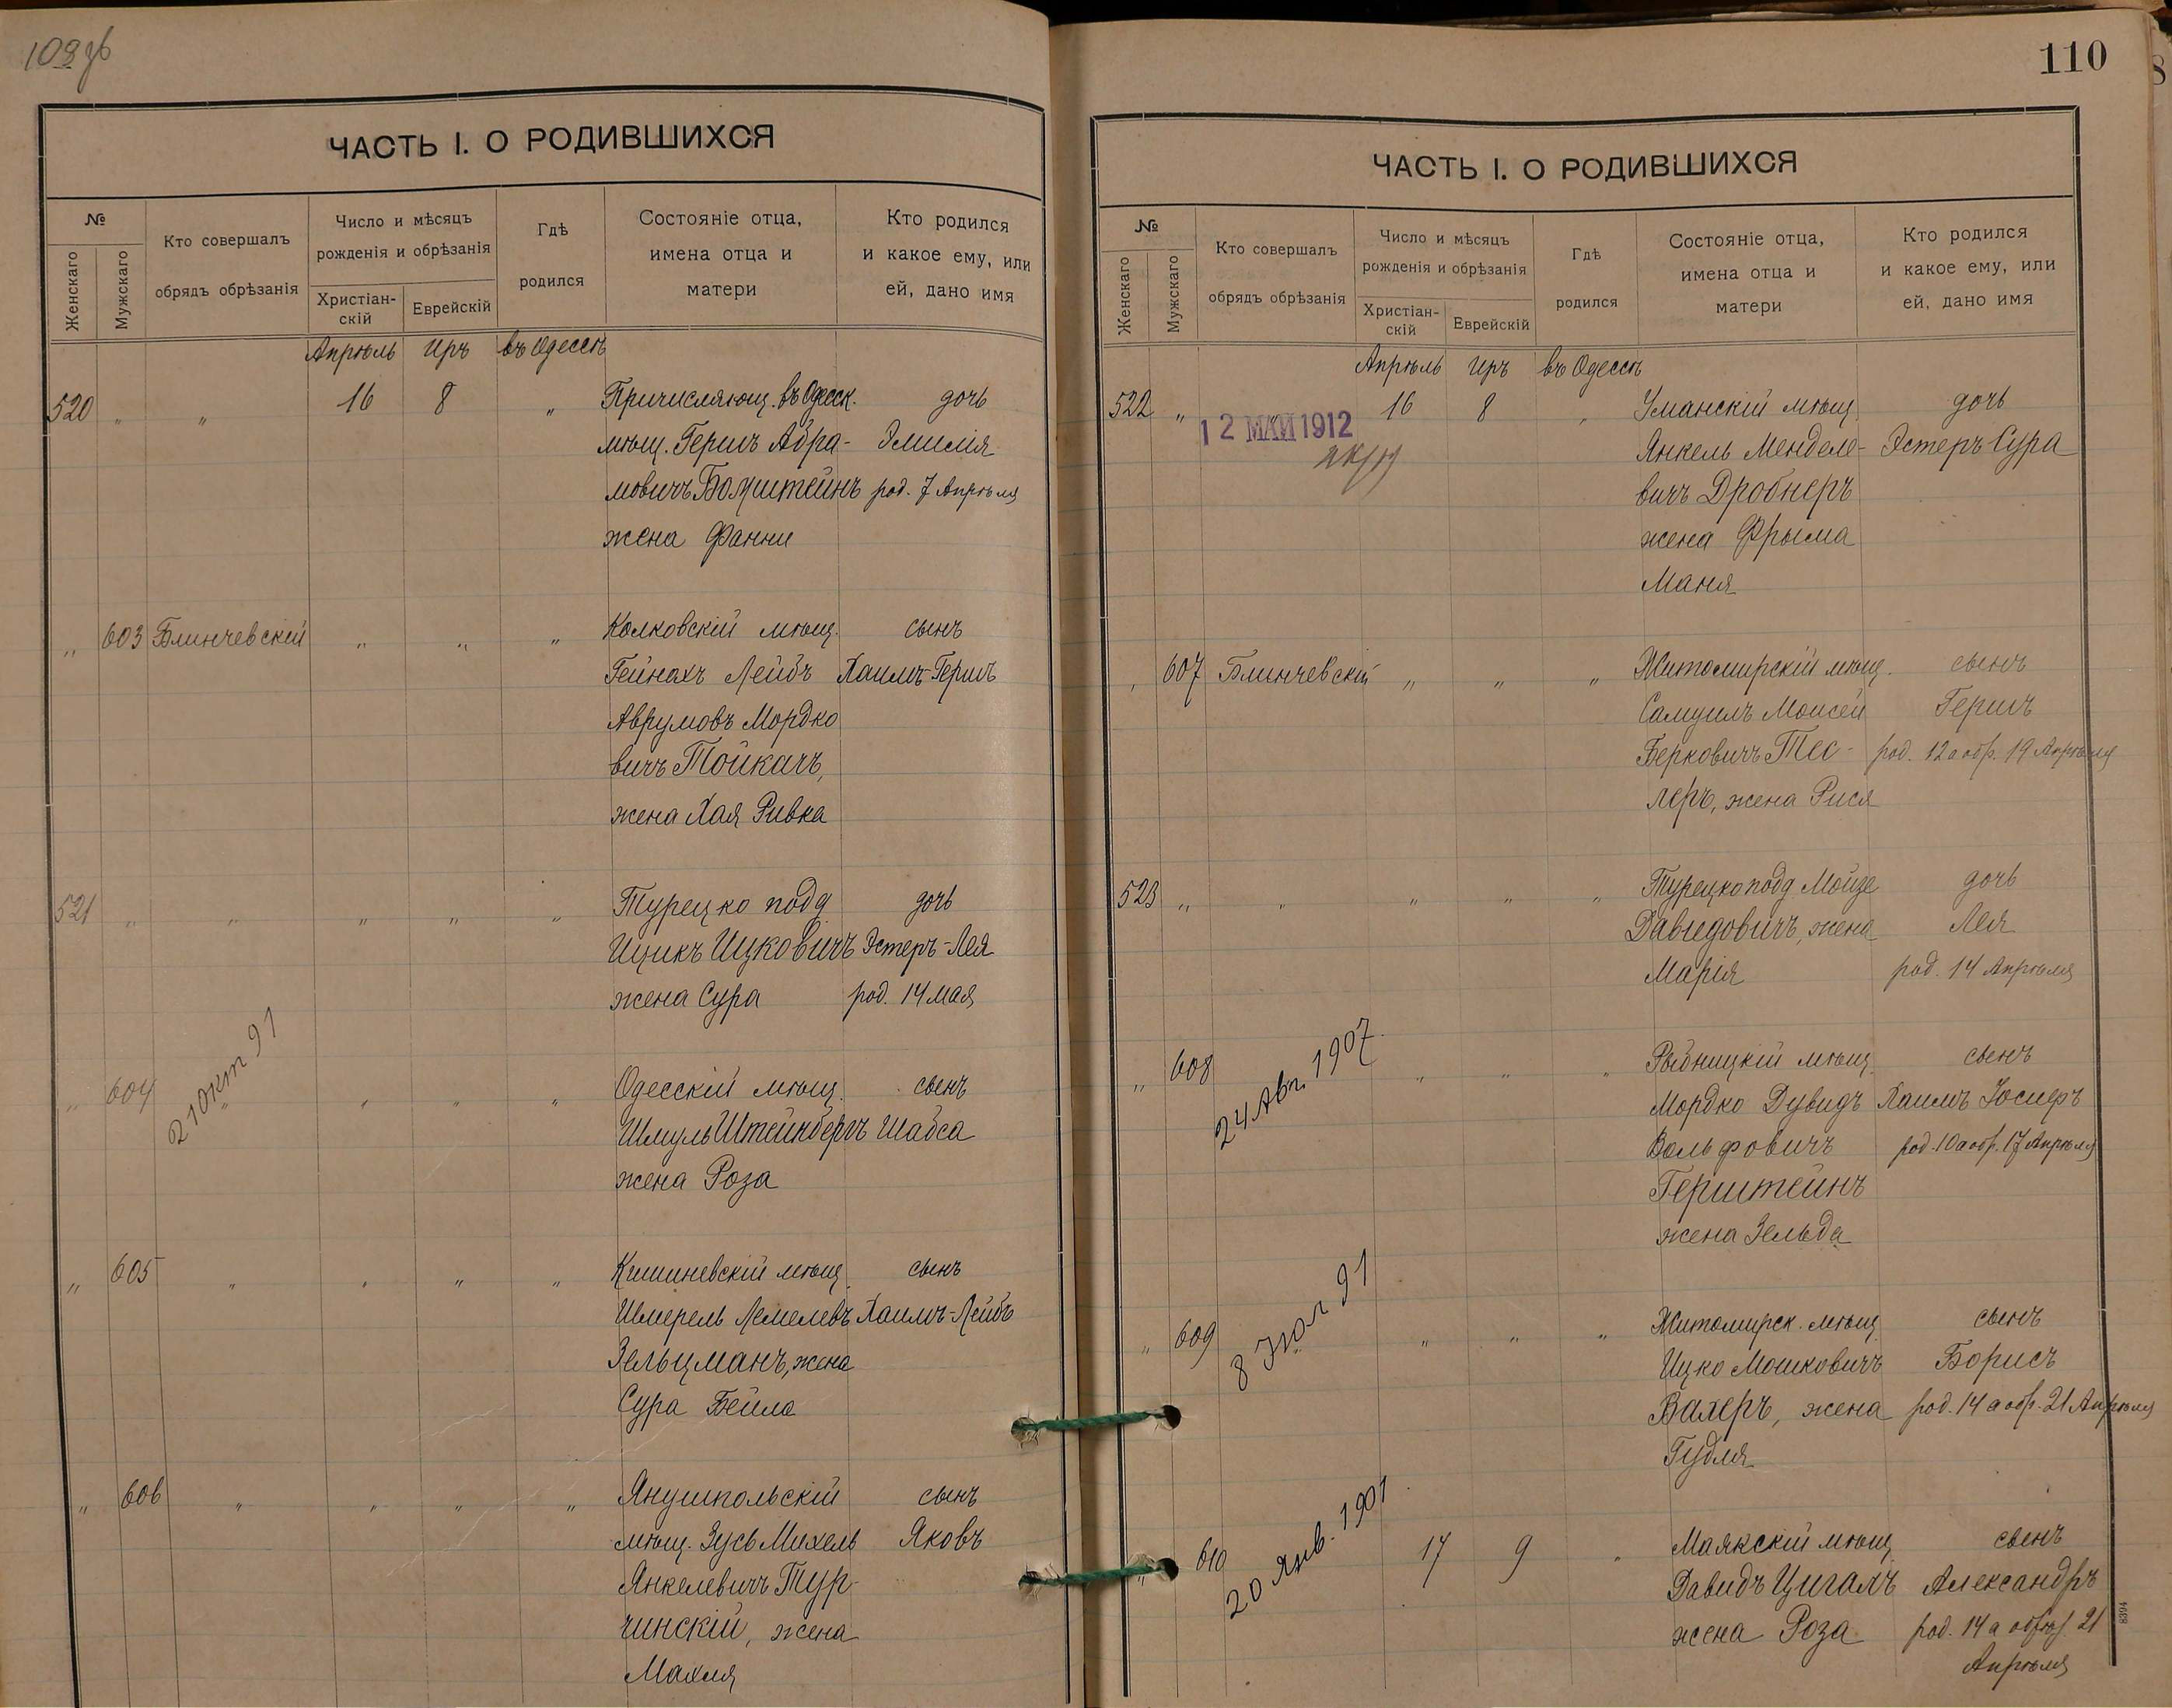 109 об
ЧАСТЬ I. О РОДИВШИХСЯ
№
Женскаго
Мужскаго
Кто совершалъ
обрядъ обрѣзанія
Число и мѣсяцъ
рожденія и обрѣзанія
Христіан-
скій
Еврейскій
Гдѣ
родился
Состояніе отца,
имена отца и
матери
Кто родился
и какое ему, или
ей, дано имя
Апрѣль Иръ въ Одессѣ
520 " " 16 8 " Причисляющ. въ Одесск. дочь
мѣщ. Гершъ Абра- Эмилія
мовичъ Бомштейнъ род. 7 Апрѣля
жена Фанни
" 603 Блинчевскій " " " Колковскій мѣщ. сынъ
Гейнахъ Лейбъ Хаимъ-Гершъ
Аврумовъ Мордко
вичъ Тойкачъ,
жена Хая Ривка
521 " " " " " Турецко подд дочь
Ицикъ Ицковичъ Эстеръ-Лея
жена Сура род. 14 мая
21 Окт 91
" 604 " " " " Одесскій мѣщ. сынъ
Шмуль Штейнбергъ Шабса
жена Роза
" 605 " " " " Кишиневскій мѣщ. сынъ
Шмерель Лемелевъ Хаимъ-Лейбъ
Зельцманъ, жена
Сура Бейла
" 606 " " " " Янушпольскій сынъ
мѣщ. Зусь Михель Яковъ
Янкелевичъ Тур-
чинскій, жена
Махля
110
ЧАСТЬ I. О РОДИВШИХСЯ
№
Женскаго
Мужскаго
Кто совершалъ
обрядъ обрѣзанія
Число и мѣсяцъ
рожденія и обрѣзанія
Христіан-
скій
Еврейскій
Гдѣ
родился
Состояніе отца,
имена отца и
матери
Кто родился
и какое ему, или
ей, дано имя
Апрѣль Иръ въ Одессѣ
522 " 16 8 " Уманскій мѣщ дочь
12 МАЙ 1912
Янкель Менделе- Эстеръ Сура
вичъ Дробнеръ
жена Фрыма
Маня
" 607 Блинчевскій " " " Житомирскій мѣщ. сынъ
Самуилъ Моисей Гершъ
Берковичъ Тес- род. 12 а обр. 19 Апрѣля
леръ, жена Рися
523 " " " " " Турецко подд Мойзе дочь
Давидовичъ, жена Лея
Марія род. 14 Апрѣля
24 Авг. 1907
" 608 " " " Рыбницкій мѣщ. сынъ
Мордко Дувидъ Хаимъ Іосифъ
Вольфовичъ род. 10 а обр. 17 Апрѣля
Герштейнъ
жена Зельда
8 Іюл 91
" 609 " " " Житомирск. мѣщ. сынъ
Ицко Мошковичъ Борисъ
Вахеръ, жена род. 14 а обр. 21 Апрѣля
Гудля
20 Янв. 1901
" 610 17 9 " Маякскій мѣщ. сынъ
Давидъ Цигалъ Александръ
жена Роза род. 14 а обрѣз. 21
Апрѣля
8394